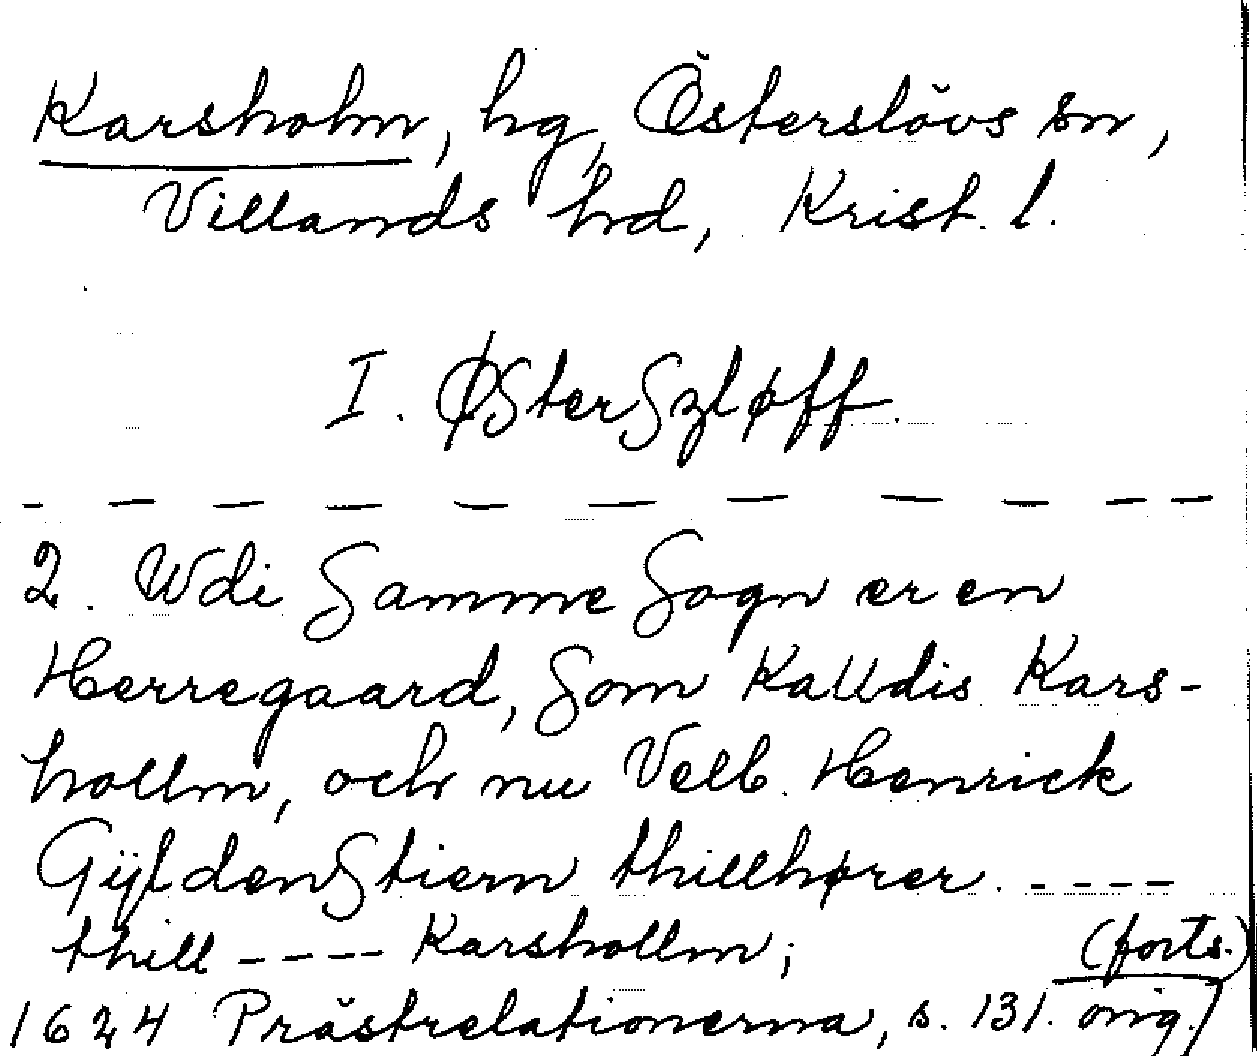 Karsholm, hg, Österslövs sn,
Villands hrd, Krist. l.
I. ØSterSzløff.
- - - - - - - - - -
2. Wdi Samme Sogn er en
Herregaard, Som Kalldis Kars-
hollm, och nu Velb. Henrick
GÿldenStiern thillhører. - - - -
thill - - - - Karshollm;
(forts.)
1624 Prästrelationerna, s. 131. orig./